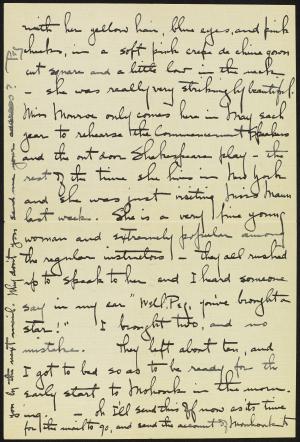 with her yellow hair, blue eyes, and pink
cheeks, in a soft pink crepe de chine gown
cut square and a little low in the neck
- she was really very strikingly beautiful.
Miss Monroe only comes here in May each
year to rehearse the Commencement speakers
and the out door Shakespearean play - the
rest of the time she lives in New York
and she was just visiting Miss Mann
last week. She is a very fine young
woman and extremely popular among
the regular instructors - they all rushed
up to speak to her and I heard someone
say in my ear "Well Peg, you've brought a
star!" I brought two, and no
mistake. They left about ten, and
I got to bed so as to be ready for the
early start to Mohonk in the morn-
ing. - oh I'll send this off now as its time
for the mail to go, and send the account of Mohonk
son by the next mail. Why don't you send me your address? Peg